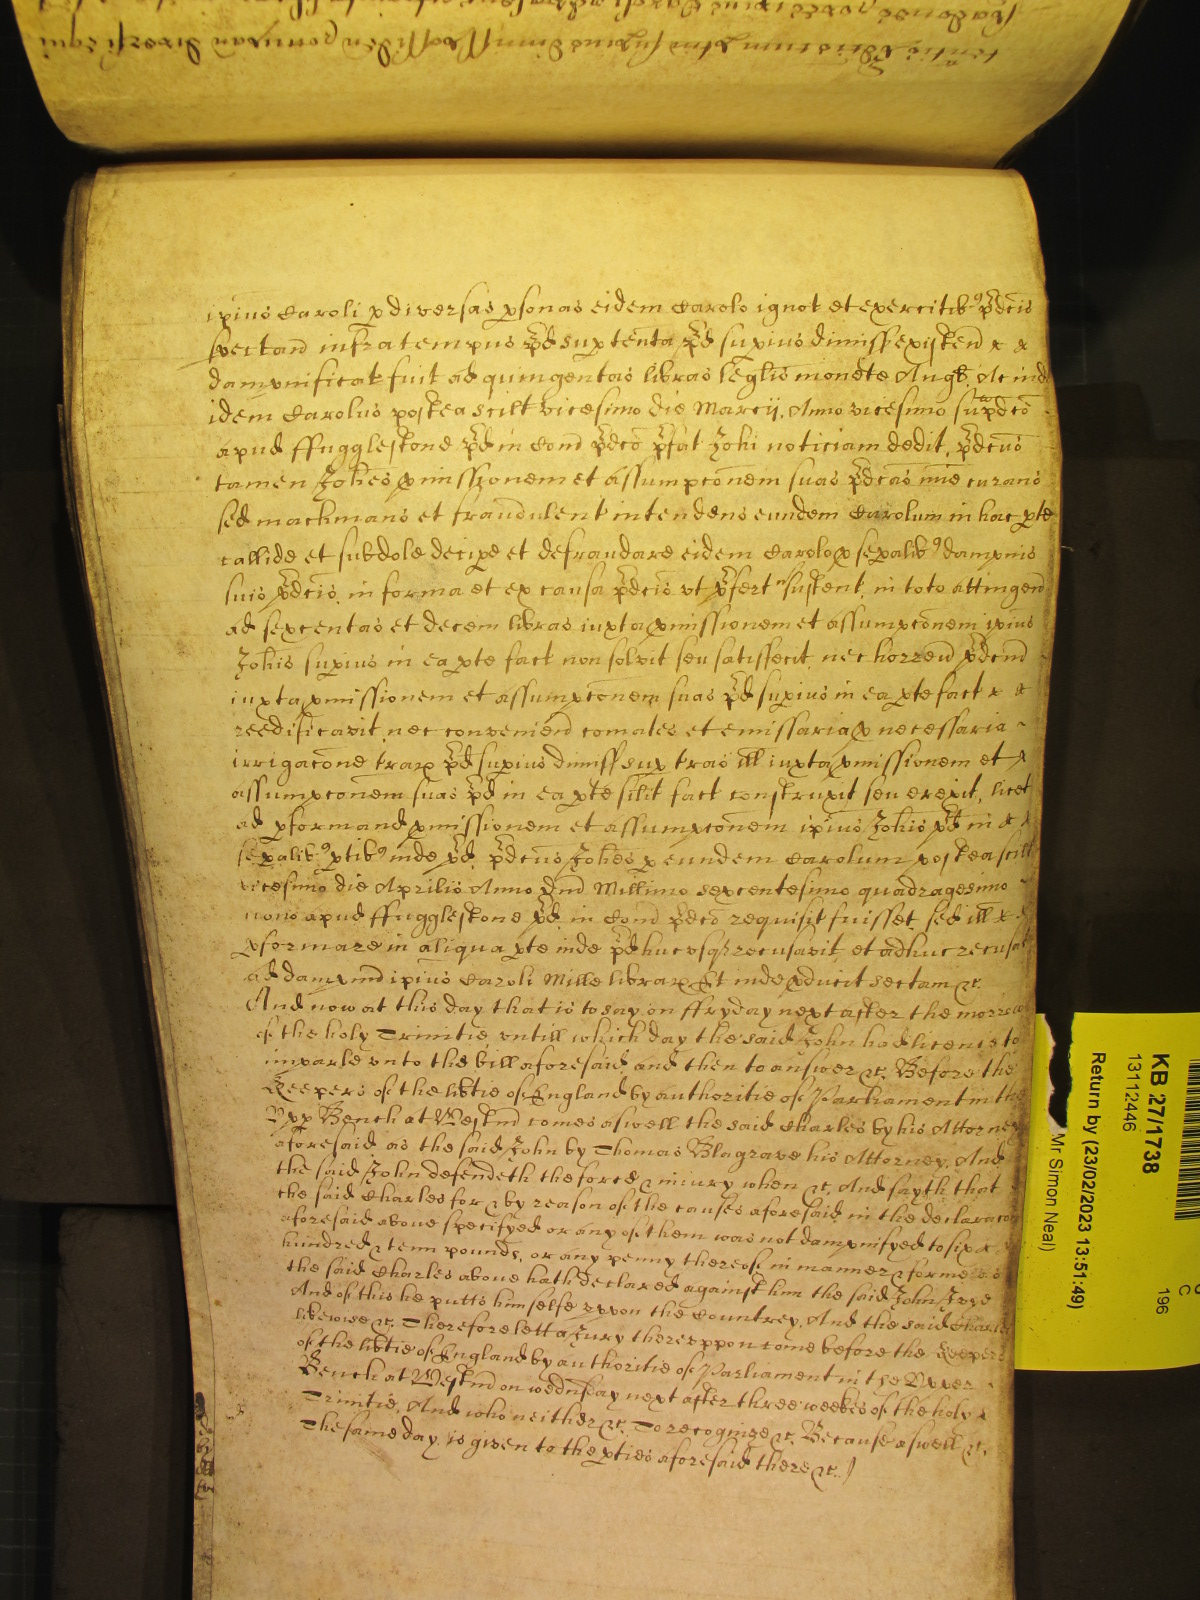 ipius Caroli p diversas psonas eidem Carolo ignot et exercitib9 pdcis
spectand infra tempus pd sup tenta pd supius dimiss existen
dampnificat fuit ad quingentas libras leglis monete Angt, Ac inde
idem Carolus postea scilt vicesimo die Marcij, Anno vicesimo sup pdco
apud ffugglestone pd in Com pdco pfat Johi noticiam dedit, pdcus
tamen Johes pmissionem et assumpconem suas pdcas mie curans
sed machinans et fraudulent intendens eundem Carolum in hac pte
callide et subdole decipe et defraudare eidem Carolo p sepalib9 dampnis
suis pdcis, in forma et ex causa pdcis vt pfert sustent, in toto attingen
ad sexcentas et decem libras iuxta pmissionem et assumpconem ipius
Johis supius in ea pte fact non solvit seu satisfecit, nec horreu pdcm
iuxta pmissionem et assumpconem suas pd supius in ea pte fact
reedificavit, nec convenien et emissaria p necessaria
irrigacone trar pd supius dimiss sup tras ill iuxta pmissionem et
assumpconem suas pd in ea pte silit fact construxit seu erexit, licet
ad pformand pmissionem et assumpconem ipius Johis pd in
sepalib9 ptib9 inde pd, pdcus Johes p eundem Carolum postea scilt
vicesimo die Aprilis Anno Dni Millimo sexcentesimo quadragesimo
nono apud ffugglestone pd, in Com pdco requisit fuisset, sed ill
pformare in aliqua pte inde pd huc vsq recusavit, et adhuc recusat
ad dampnu ipius Caroli Mille librar Et inde pducit sectam &c.
And now at this day that is to say on ffryday next after the morrow
of the holy Trinitie, vntill which day the said John had licence to
imparle vnto the bill aforesaid, and then to answer &c. Before the
Keepers of the libtie of England by authoritie of Parliament in the
Vpp Bench at Westm comes aswell the said Charles by his Attorney
aforesaid as the said John by Thomas Blagrave his Attorney, And
the said John defendeth the force & iniury when &c. And sayth that
the said Charles for & by reason of the causes aforesaid in the declaracon
aforesaid above specifyed or any of them was not dampnifyed to six
hundred & tenn pounds, or any penny thereof in manner & forme as
the said Charles above hath declared against him the said John
And of this he putts himselfe vppon the Countrey, And the said Charles
likewise &c. Therefore lett a Jury therevppon come before the Keepers
of the libtie of England by authoritie of Parliament in the Vpper
Bench at Westm on wednsday next after three weekes of the holy
Trinitie, And who neither &c. To recognize &c. Because aswell &c.
The same day is given to the pties aforesaid there &c.
KB 27/1738
13112446
Return by (23/02/2023 13:51:49)
Mr Simon Neal)
C
196